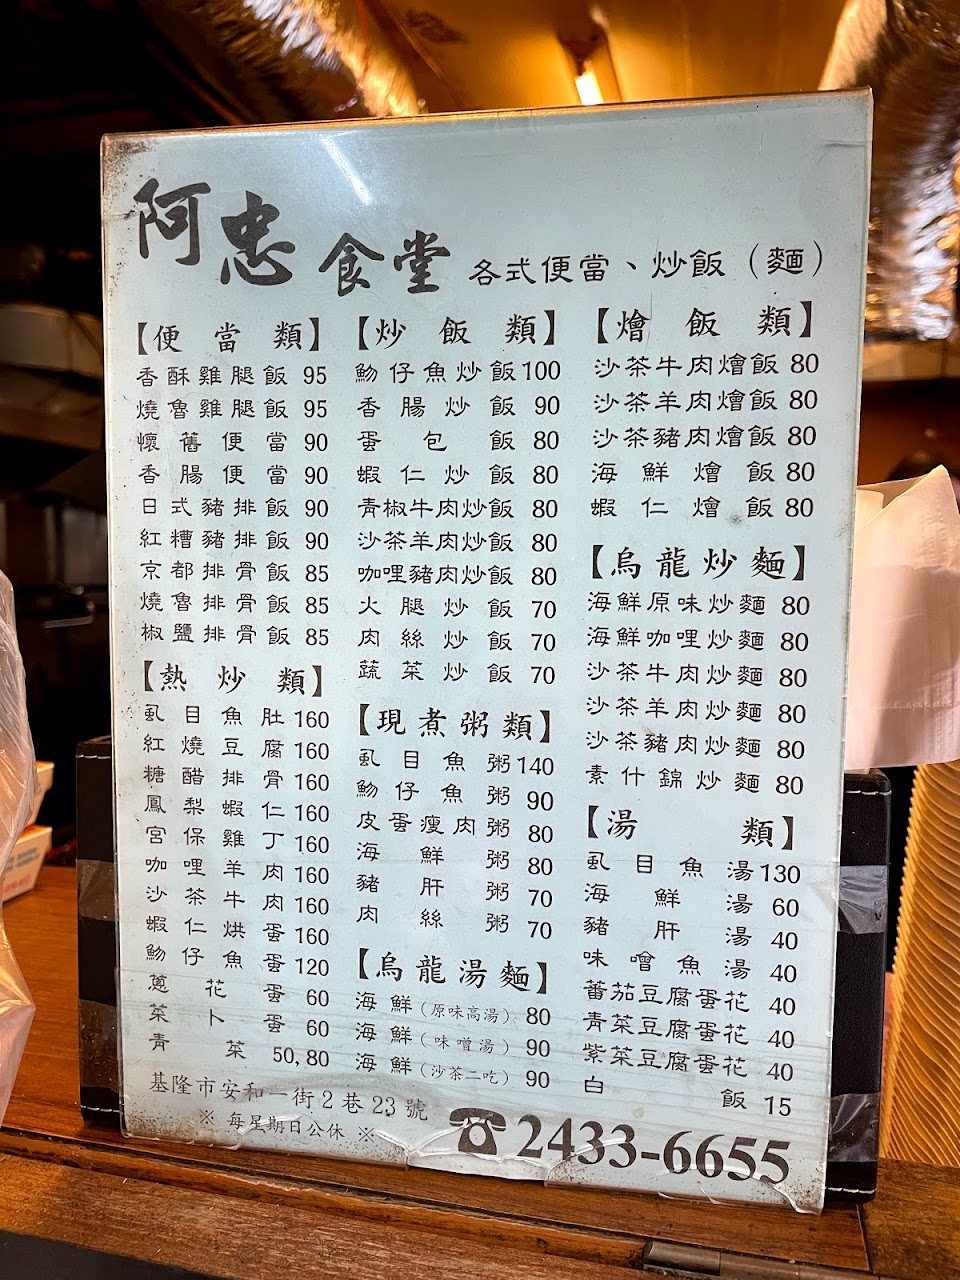 阿忠食堂 各式便當、炒飯（麵）
【便當類】
香酥雞腿飯 95
燒魯雞腿飯 95
懷舊便當 90
香腸便當 90
日式豬排飯 90
紅糟豬排飯 90
京都排骨飯 85
燒魯排骨飯 85
椒鹽排骨飯 85
【熱炒類】
虱目魚肚 160
紅燒豆腐 160
糖醋排骨 160
鳳梨蝦仁 160
宮保雞丁 160
咖哩羊肉 160
沙茶牛肉 160
蝦仁烘蛋 160
魩仔魚蛋 120
蔥花蛋 60
菜卜蛋 60
青菜 50,80
【炒飯類】
魩仔魚炒飯 100
香腸炒飯 90
蛋包飯 80
蝦仁炒飯 80
青椒牛肉炒飯 80
沙茶羊肉炒飯 80
咖哩豬肉炒飯 80
火腿炒飯 70
肉絲炒飯 70
蔬菜炒飯 70
【現煮粥類】
虱目魚粥 140
魩仔魚粥 90
皮蛋瘦肉粥 80
海鮮粥 80
豬肝粥 70
肉絲粥 70
【烏龍湯麵】
海鮮（原味高湯） 80
海鮮（味噌湯） 90
海鮮（沙茶二吃） 90
【燴飯類】
沙茶牛肉燴飯 80
沙茶羊肉燴飯 80
沙茶豬肉燴飯 80
海鮮燴飯 80
蝦仁燴飯 80
【烏龍炒麵】
海鮮原味炒麵 80
海鮮咖哩炒麵 80
沙茶牛肉炒麵 80
沙茶羊肉炒麵 80
沙茶豬肉炒麵 80
素什錦炒麵 80
【湯類】
虱目魚湯 130
海鮮湯 60
豬肝湯 40
味噌魚湯 40
蕃茄豆腐蛋花 40
青菜豆腐蛋花 40
紫菜豆腐蛋花 40
白飯 15
基隆市安和一街2巷23號
※ 每星期日公休 ※
☎2433-6655